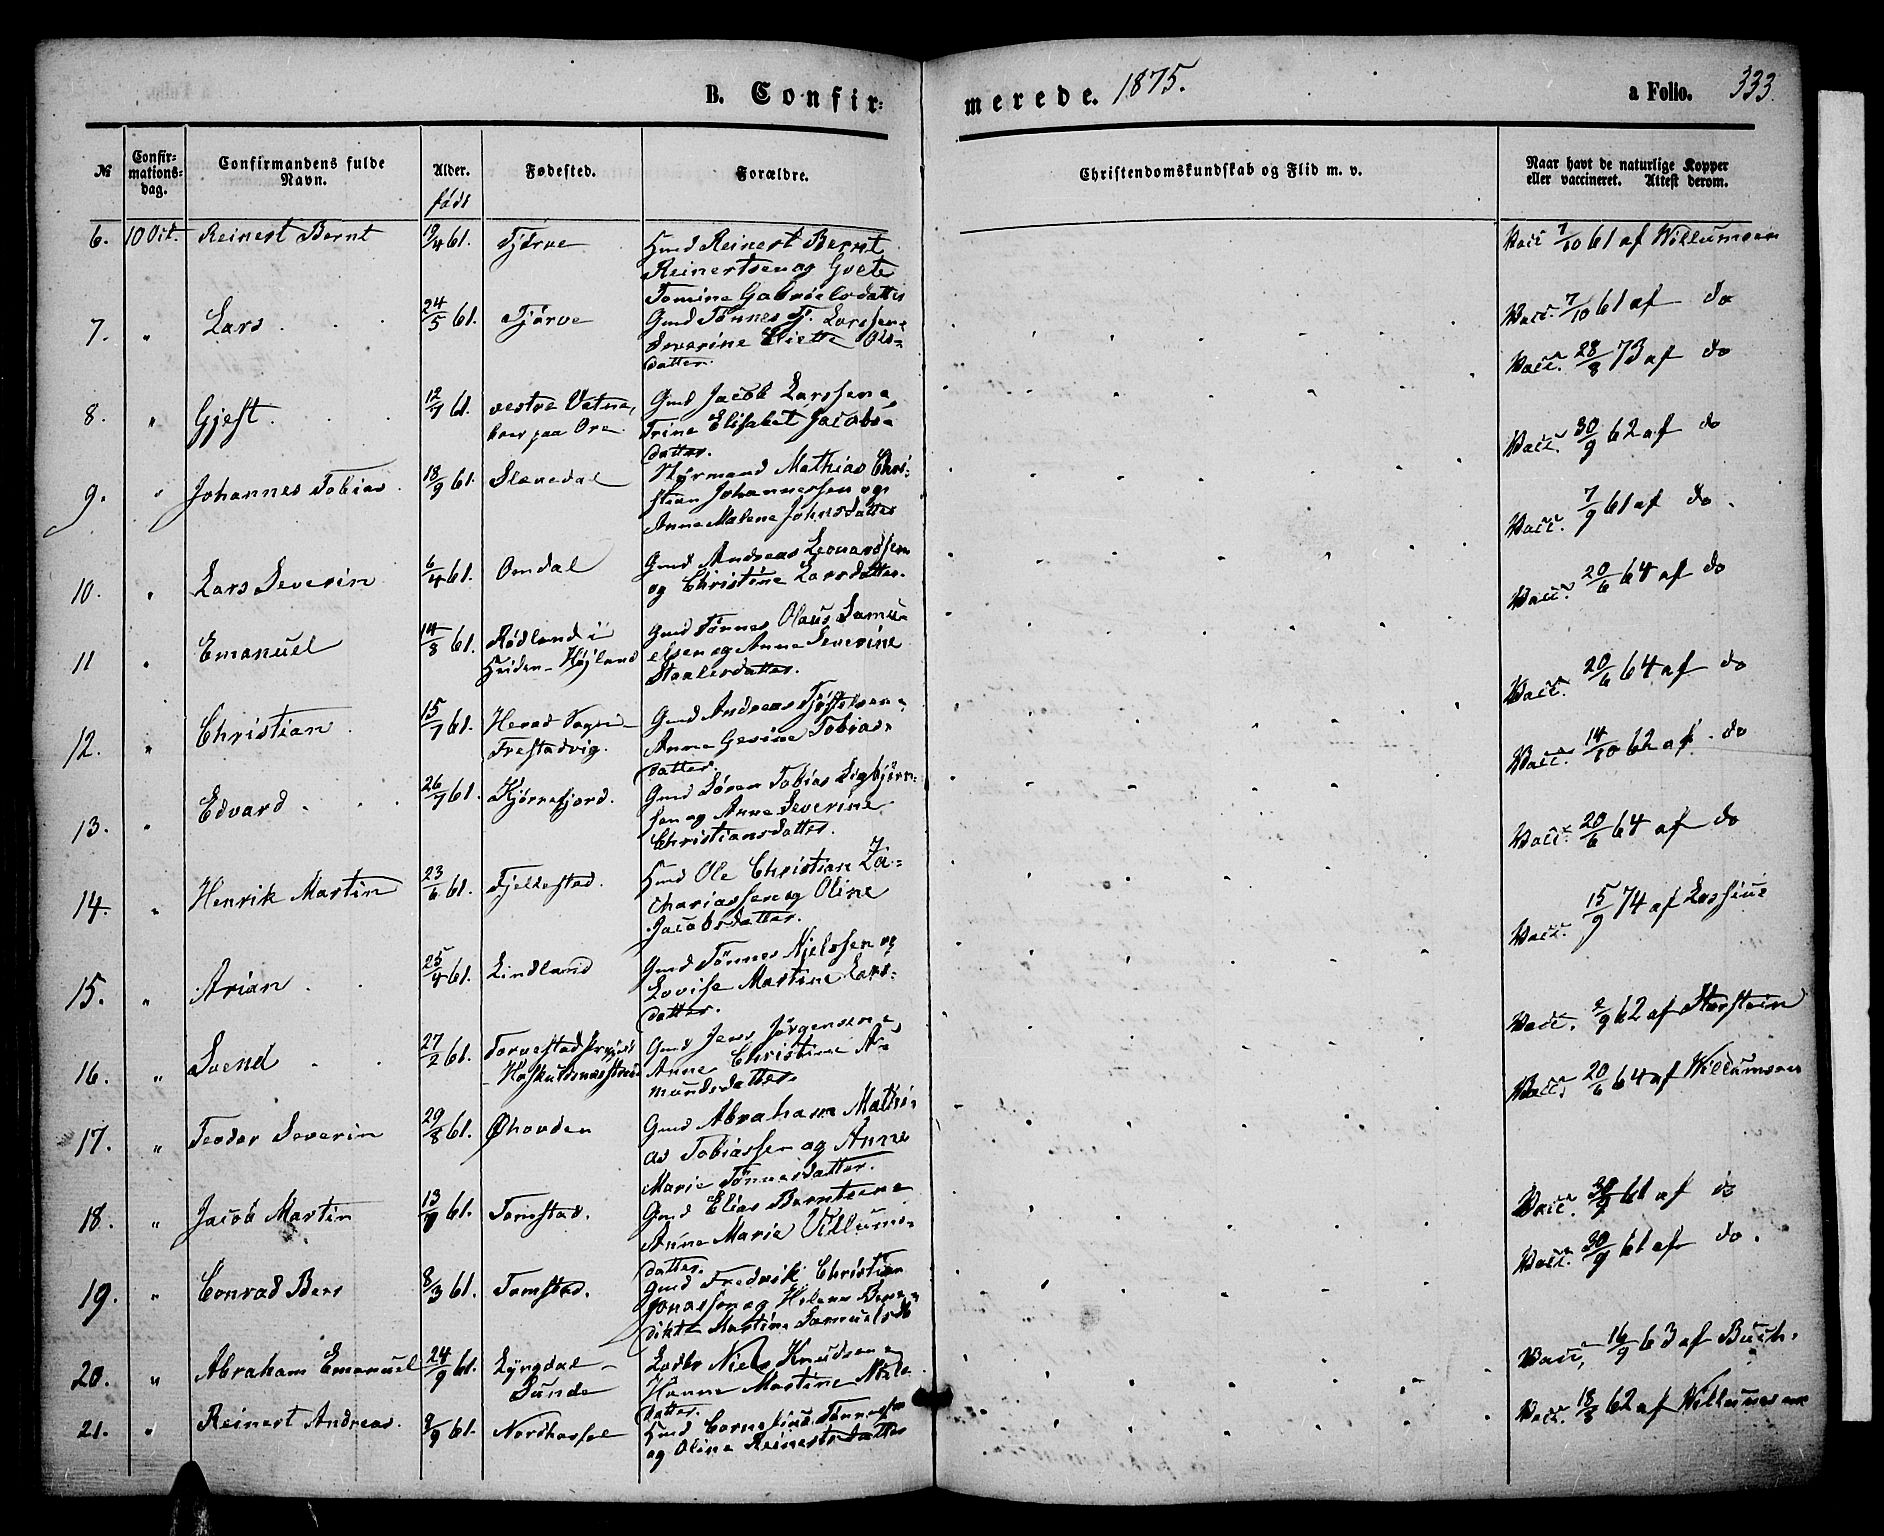 B. Confir- merede. 1875. a Folio. 333.
№ Confir-mations-dag. Confirmandens fulde Navn. Alder. født Fødested. Forældre. Christendomskundskab og Flid m. v. Naar havt de naturlige Kopper eller vaccineret. Attest derom.
6. 10 Oct. Reinert Bernt 19/4 61. Tjörve Reinert Bernt
Reinertsen og Grete
Tomine Gabrielsdatter
Vacc 7/10 61 af Willumsen
7. " Lars 24/5 61. Tjörve Gmd Tönnes Tj. Larssen
Severine Eliette Ols-
datter.
Vacc. 7/10 61 af do
8. " Gjest 12/7 61. vestre Vatne, Gmd Jacob Larssen
paa Ore Trine Elisabet Jacobs-
datter.
Vacc. 28/8 73 af do
9. " Johannes Tobias 18/9 61. Slevedal Styrmand Mathias Chri-
stian Johannessen og
Anne Malene Johnsdatter
Vacc. 30/9 62 af do
10. " Lars Severin 6/4 61. Omdal Gmd Andreas Leonardsen
og Christine Larsdatter.
Vacc. 7/9 61 af do.
11 " Emanuel 14/8 61. Rödland i Gmd Tönnes Olaus Samu-
Hiden-Höjland elsen og Anne Severine
Staalesdatter.
Vacc. 20/6 64 af do
12. " Christian 15/7 61. Herad Sogn Gmd Andreas Tjöstelsen
Frestadvig. Anne Gesine Tobias-
datter.
Vacc. 20/6 64 af do
13. " Edvard 26/7 61. Kjörrefjord. Gmd Sören Tobias Sigbjörn-
sen og Anne Severine
Christiansdatter.
Vacc. 14/10 62 af do
14. " Henrik Martin 23/6 61. Fjeldestad. Ole Christian Za-
chariassen og Oline
Jacobsdatter.
Vacc. 20/6 64 af do
15. " Arian 25/4 61. Lindland Gmd Tönnes Njelssen og
Lovise Martine Lars-
datter.
Vacc. 15/9 74 af Lassius
16. " Svend 27/2 61. Torvestad Gmd Jens Jörgensen
Anne Christine As-
mundsdatter.
Vacc. 2/9 62 af Storstein
17. " Teodor Severin 29/8 61. Øhovden Gmd Abraham Mathi-
as Tobiassen og Anne
Marie Tönnesdatter.
Vacc. 20/6 64 af Willumsen
18. " Jacob Martin 13/9 61. Tomstad. Gmd Elias Berntsen
Anne Marie Villums-
datter.
Vacc. 30/9 61 af do
19. " Conrad Ber 8/3 61. Tomstad. Gmd Fredrik Christian
Jonassen og Helene Bene-
dikte Martine Samuelsdt
Vacc. 30/9 61 af do.
20. " Abraham Emanuel 24/9 61. Lyngdal- Niels Knudsen
Sunde Hanne Martine Niels-
datter.
Vacc. 16/9 63 af Buch.
21. " Reinert Andreas 9/9 61. Nordhassel Cornelius Tönnessen
og Oline Reinertsdatter
Vacc. 18/8 62 af Willumsen